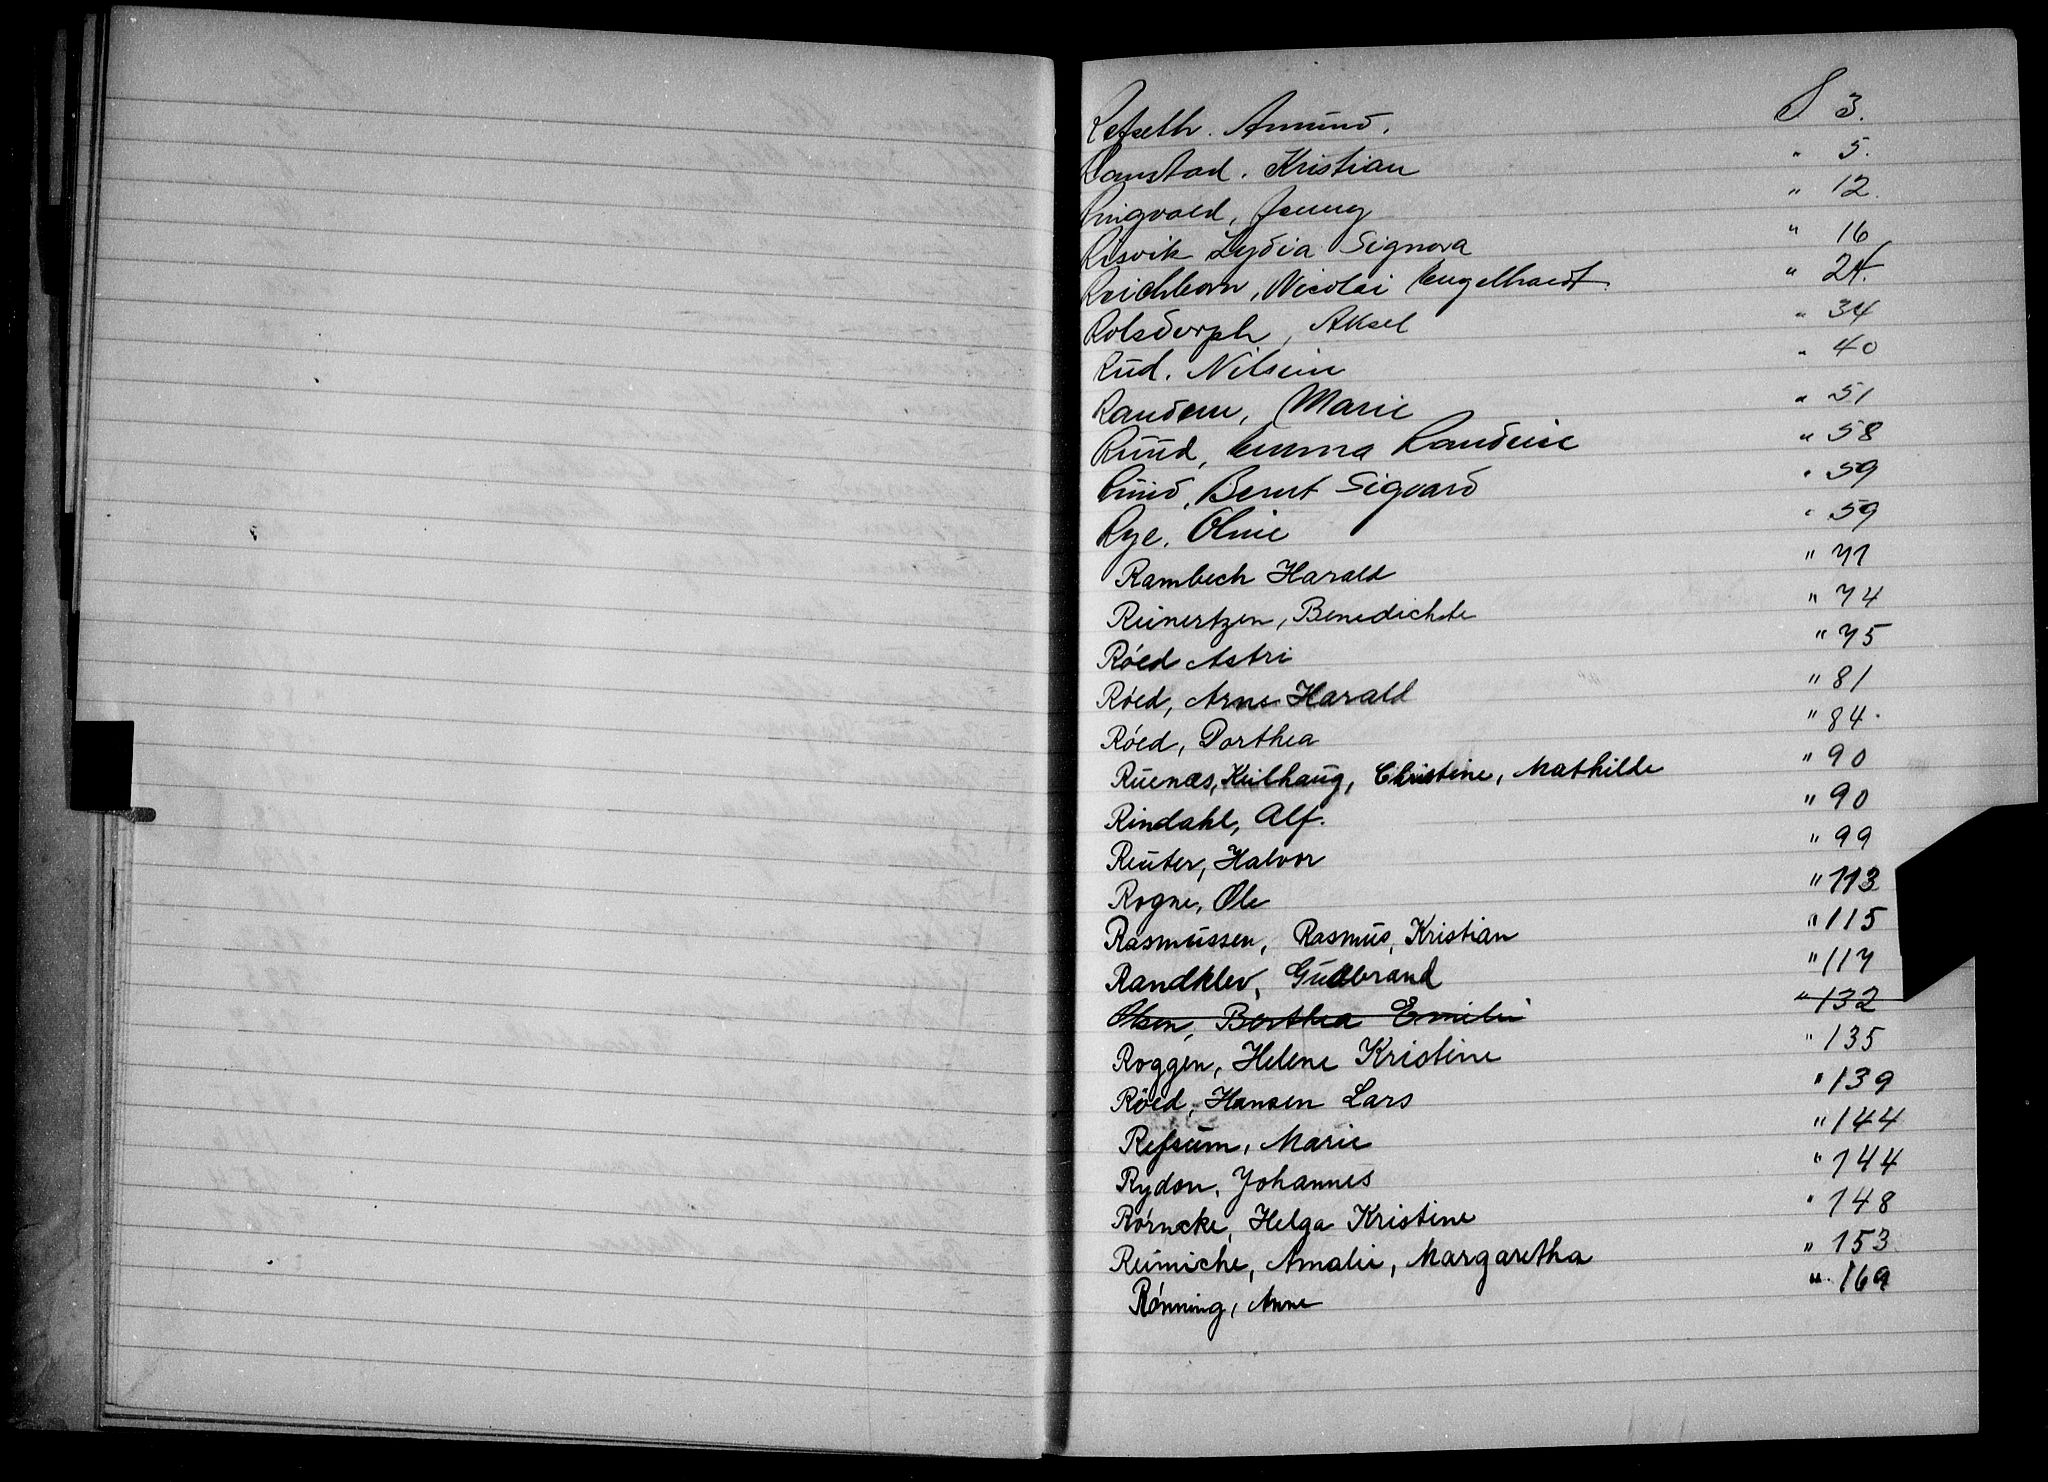 Refseth. Amund. S 3.
Ramstad. Kristian " 5.
Ringvold, Jenny " 12.
Risvik Lydia Signora " 16
Reichborn, Nicolai Engelhardt. " 24.
Rolsdorph, Aksel " 34
Rud. Nilsine " 40
Randem, Marie " 51
Ruud, Emma Randine " 58
Ruud, Bernt Sigvard " 59
Rye. Oline " 59
Rambech Harald " 71
Reinertzen, Benedichte " 74
Röed Astri " 75
Röed, Arne Harald " 81
Röed, Dorthea " 84.
Ruenæs, Keilhaug, Christine, Mathilde " 90
Rindahl, Alf. " 90
Reuter, Halvor " 99
Rogne, Ole " 113
Rasmussen, Rasmus, Kristian " 115
Randklev, Gudbrand " 117
Olsen, Berthea Emilie " 132
Roggen, Helene Kristine " 135
Röed, Hansen Lars " 139
Refsum, Marie " 144
Rydon, Johannes " 144
Rörncke, Helga Kristine " 148
Reimiche, Amalie, Margaretha " 153
Rönning, Anne " 169